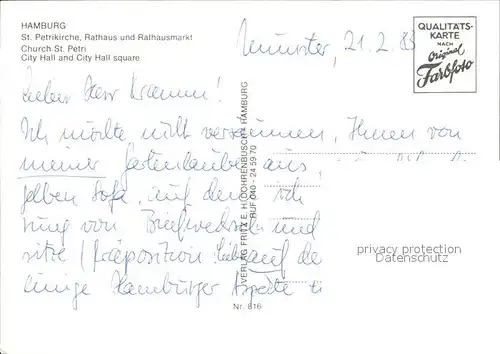 HAMBURG
St. Petrikirche, Rathaus und Rathausmarkt
Church St. Petri
City Hall and City Hall square
QUALITÄTS-
KARTE
NACH
Original
Farbfoto
Münster, 21.2.83
Lieber Herr
Ich möchte nicht versäumen, Ihnen von
meiner Gartenlaube aus,
gelben Sofa, auf dem ich
von Briefwechseln und
sitze (Präposition auf
einige Hamburger Aspekte
VERLAG FRITZ E. H. DOHRENBUSCH · HAMBURG
RUF 040 - 24 59 70
privacy protection
Datenschutz
Nr. 816